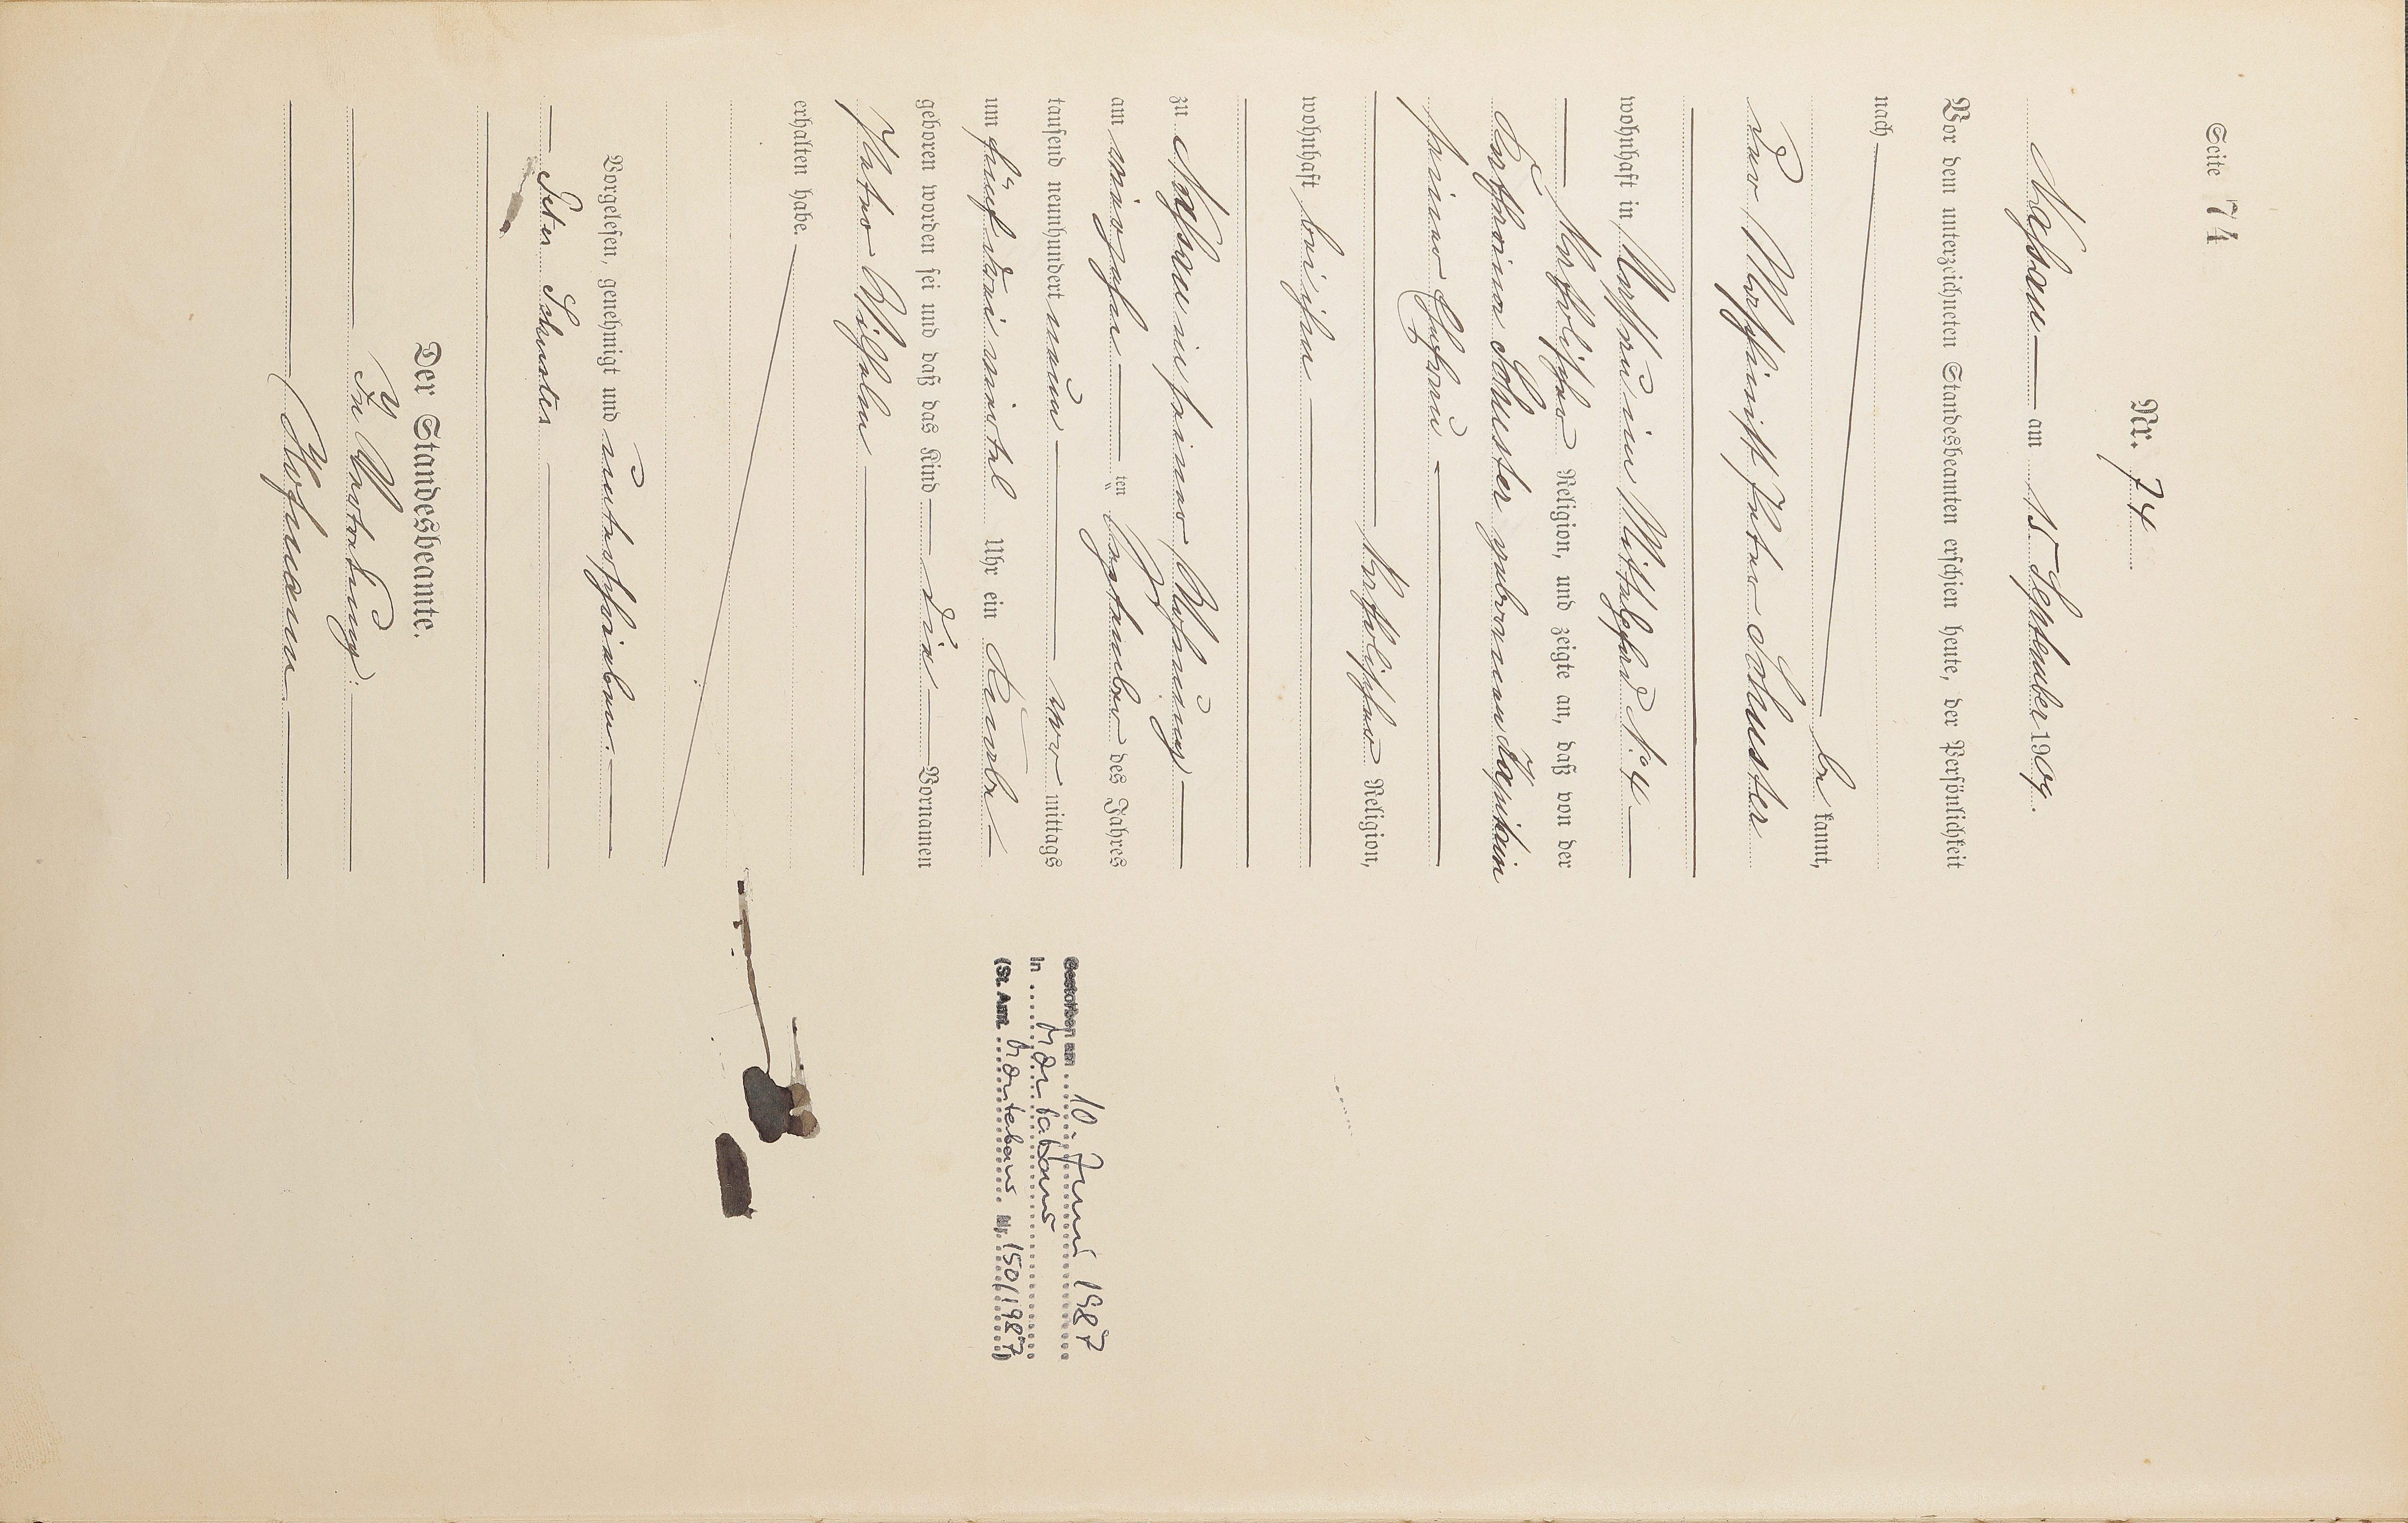 Seite 74
Nr. 74
Nassau am 15 September 1909.
Vor dem unterzeichneten Standesbeamten erschien heute, der Persönlichkeit
nach
be kannt,
der Maschinist Peter Schuster
wohnhaft in Nassau im N° 4
katholischer Religion, und zeigte an, daß von der
Katharina Schuster geborenen
seiner Ehefrau
katholischer Religion,
wohnhaft bei ihm
zu Nassau in seiner Wohnung
am vierzehn ten September des Jahres
tausend neunhundert neun vor mittags
um fünf drei viertel Uhr ein Knabe
geboren worden sei und daß das Kind die Vornamen
Peter Wilhelm
erhalten habe.
Vorgelesen, genehmigt und unterschrieben.
Peter Schuster
Der Standesbeamte.
In Vertretung
Hofmann
Gestorben am 10. Juni 1987
in Montabaur
(St. Amt Montabaur Nr. 150/1987)